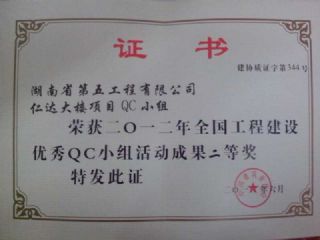 证书
建协质证字第344号
湖南省第五工程有限公司
仁达大楼项目QC小组
荣获二〇一二年全国工程建设
优秀QC小组活动成果二等奖
特发此证
二〇一二年六月